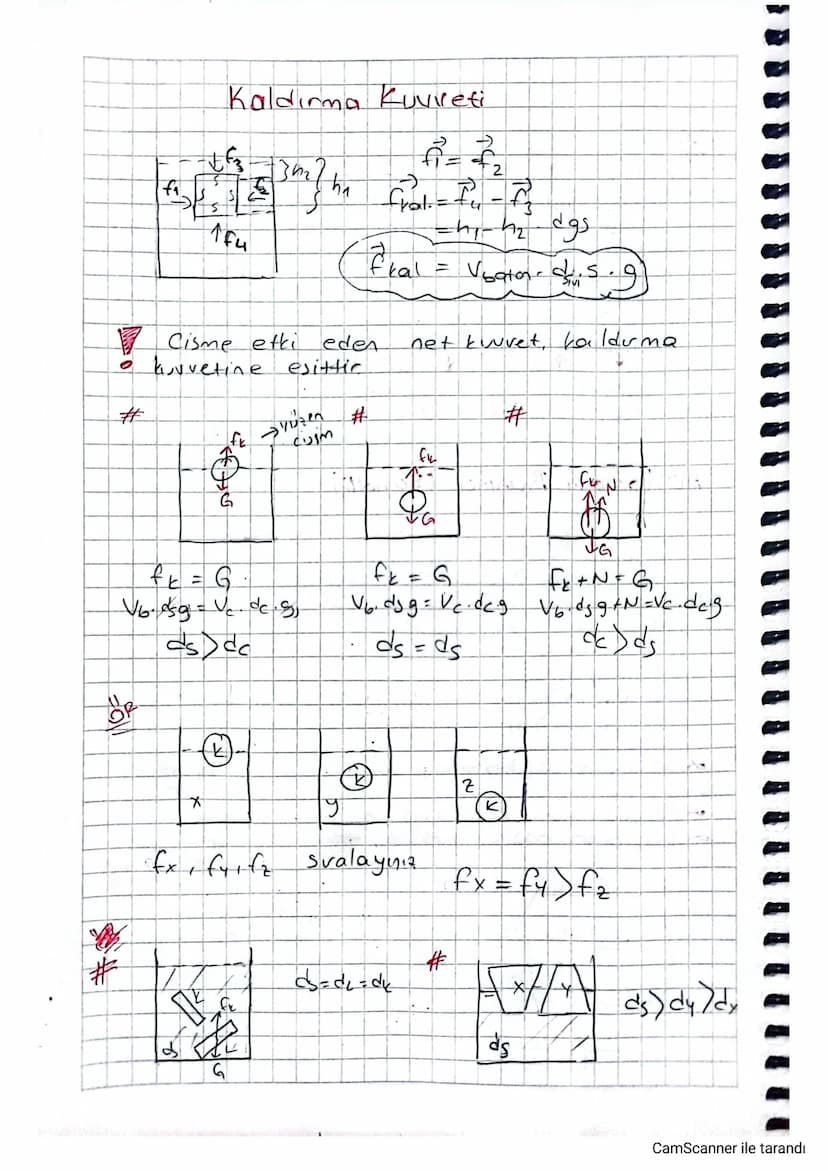 Kaldırma Kuvveti
f₃
f₁ f₂ }h₂ } h₁
f₄
s s s s
f₁ = f₂
fkal. = f₄ - f₃
= h₁ - h₂ · dgs
fkal = Vbatan · dsıvı · s · g
! Cisme etki eden net kuvvet, kaldırma
kuvvetine eşittir
# fk → yüzen cisim
G
# fk
G
# fk N
G
fk = G
Vb.dsg = Vc.dc.g
ds > dc
fk = G
Vb.dsg = Vc.dcg
ds = ds
fk + N = G
Vb.dsg + N = Vc.dcg
dc > ds
ÖR
K K K
x y z
fx, fy, fz sıralayınız
fx = fy > fz
#
K fk
d L
G
ds = dL = dk
#
x y
ds
ds > dy > dx
CamScanner ile tarandı